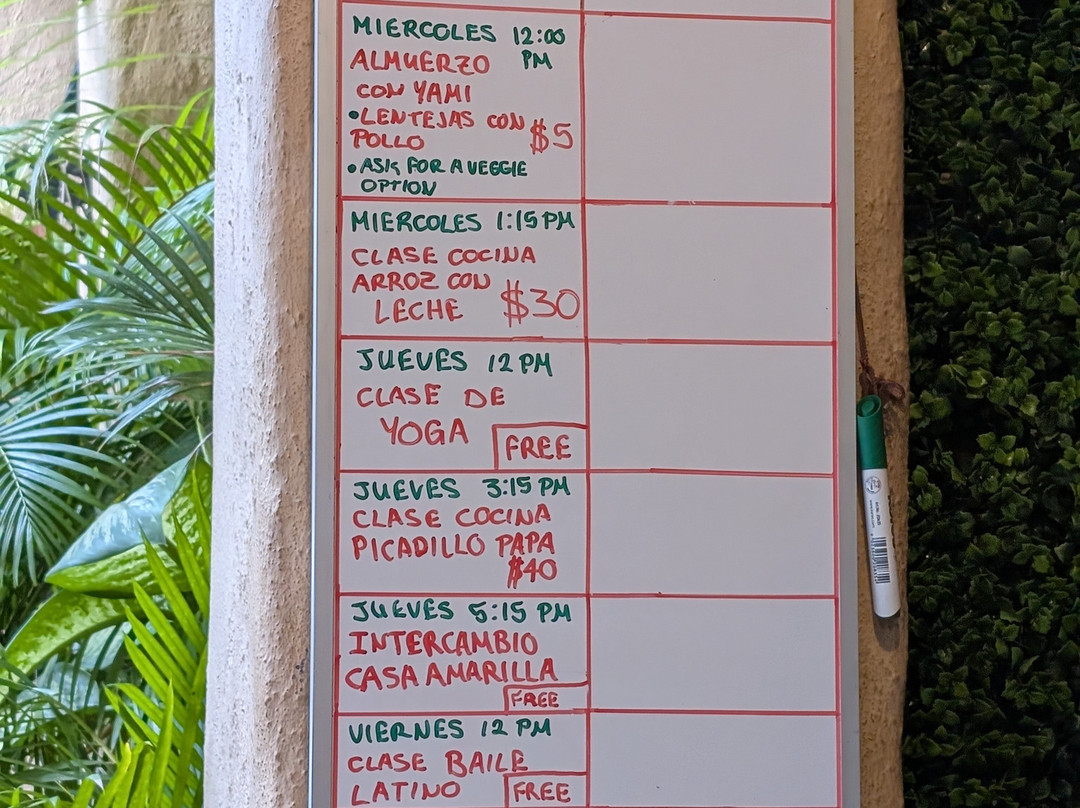 MIERCOLES 12:00
PM
ALMUERZO
CON YAMI
•LENTEJAS CON
POLLO $5
•ASK FOR A VEGGIE
OPTION
MIERCOLES 1:15 PM
CLASE COCINA
ARROZ CON
LECHE $30
JUEVES 12 PM
CLASE DE
YOGA FREE
JUEVES 3:15 PM
CLASE COCINA
PICADILLO PAPA
$40
JUEVES 5:15 PM
INTERCAMBIO
CASA AMARILLA
FREE
VIERNES 12 PM
CLASE BAILE
LATINO FREE